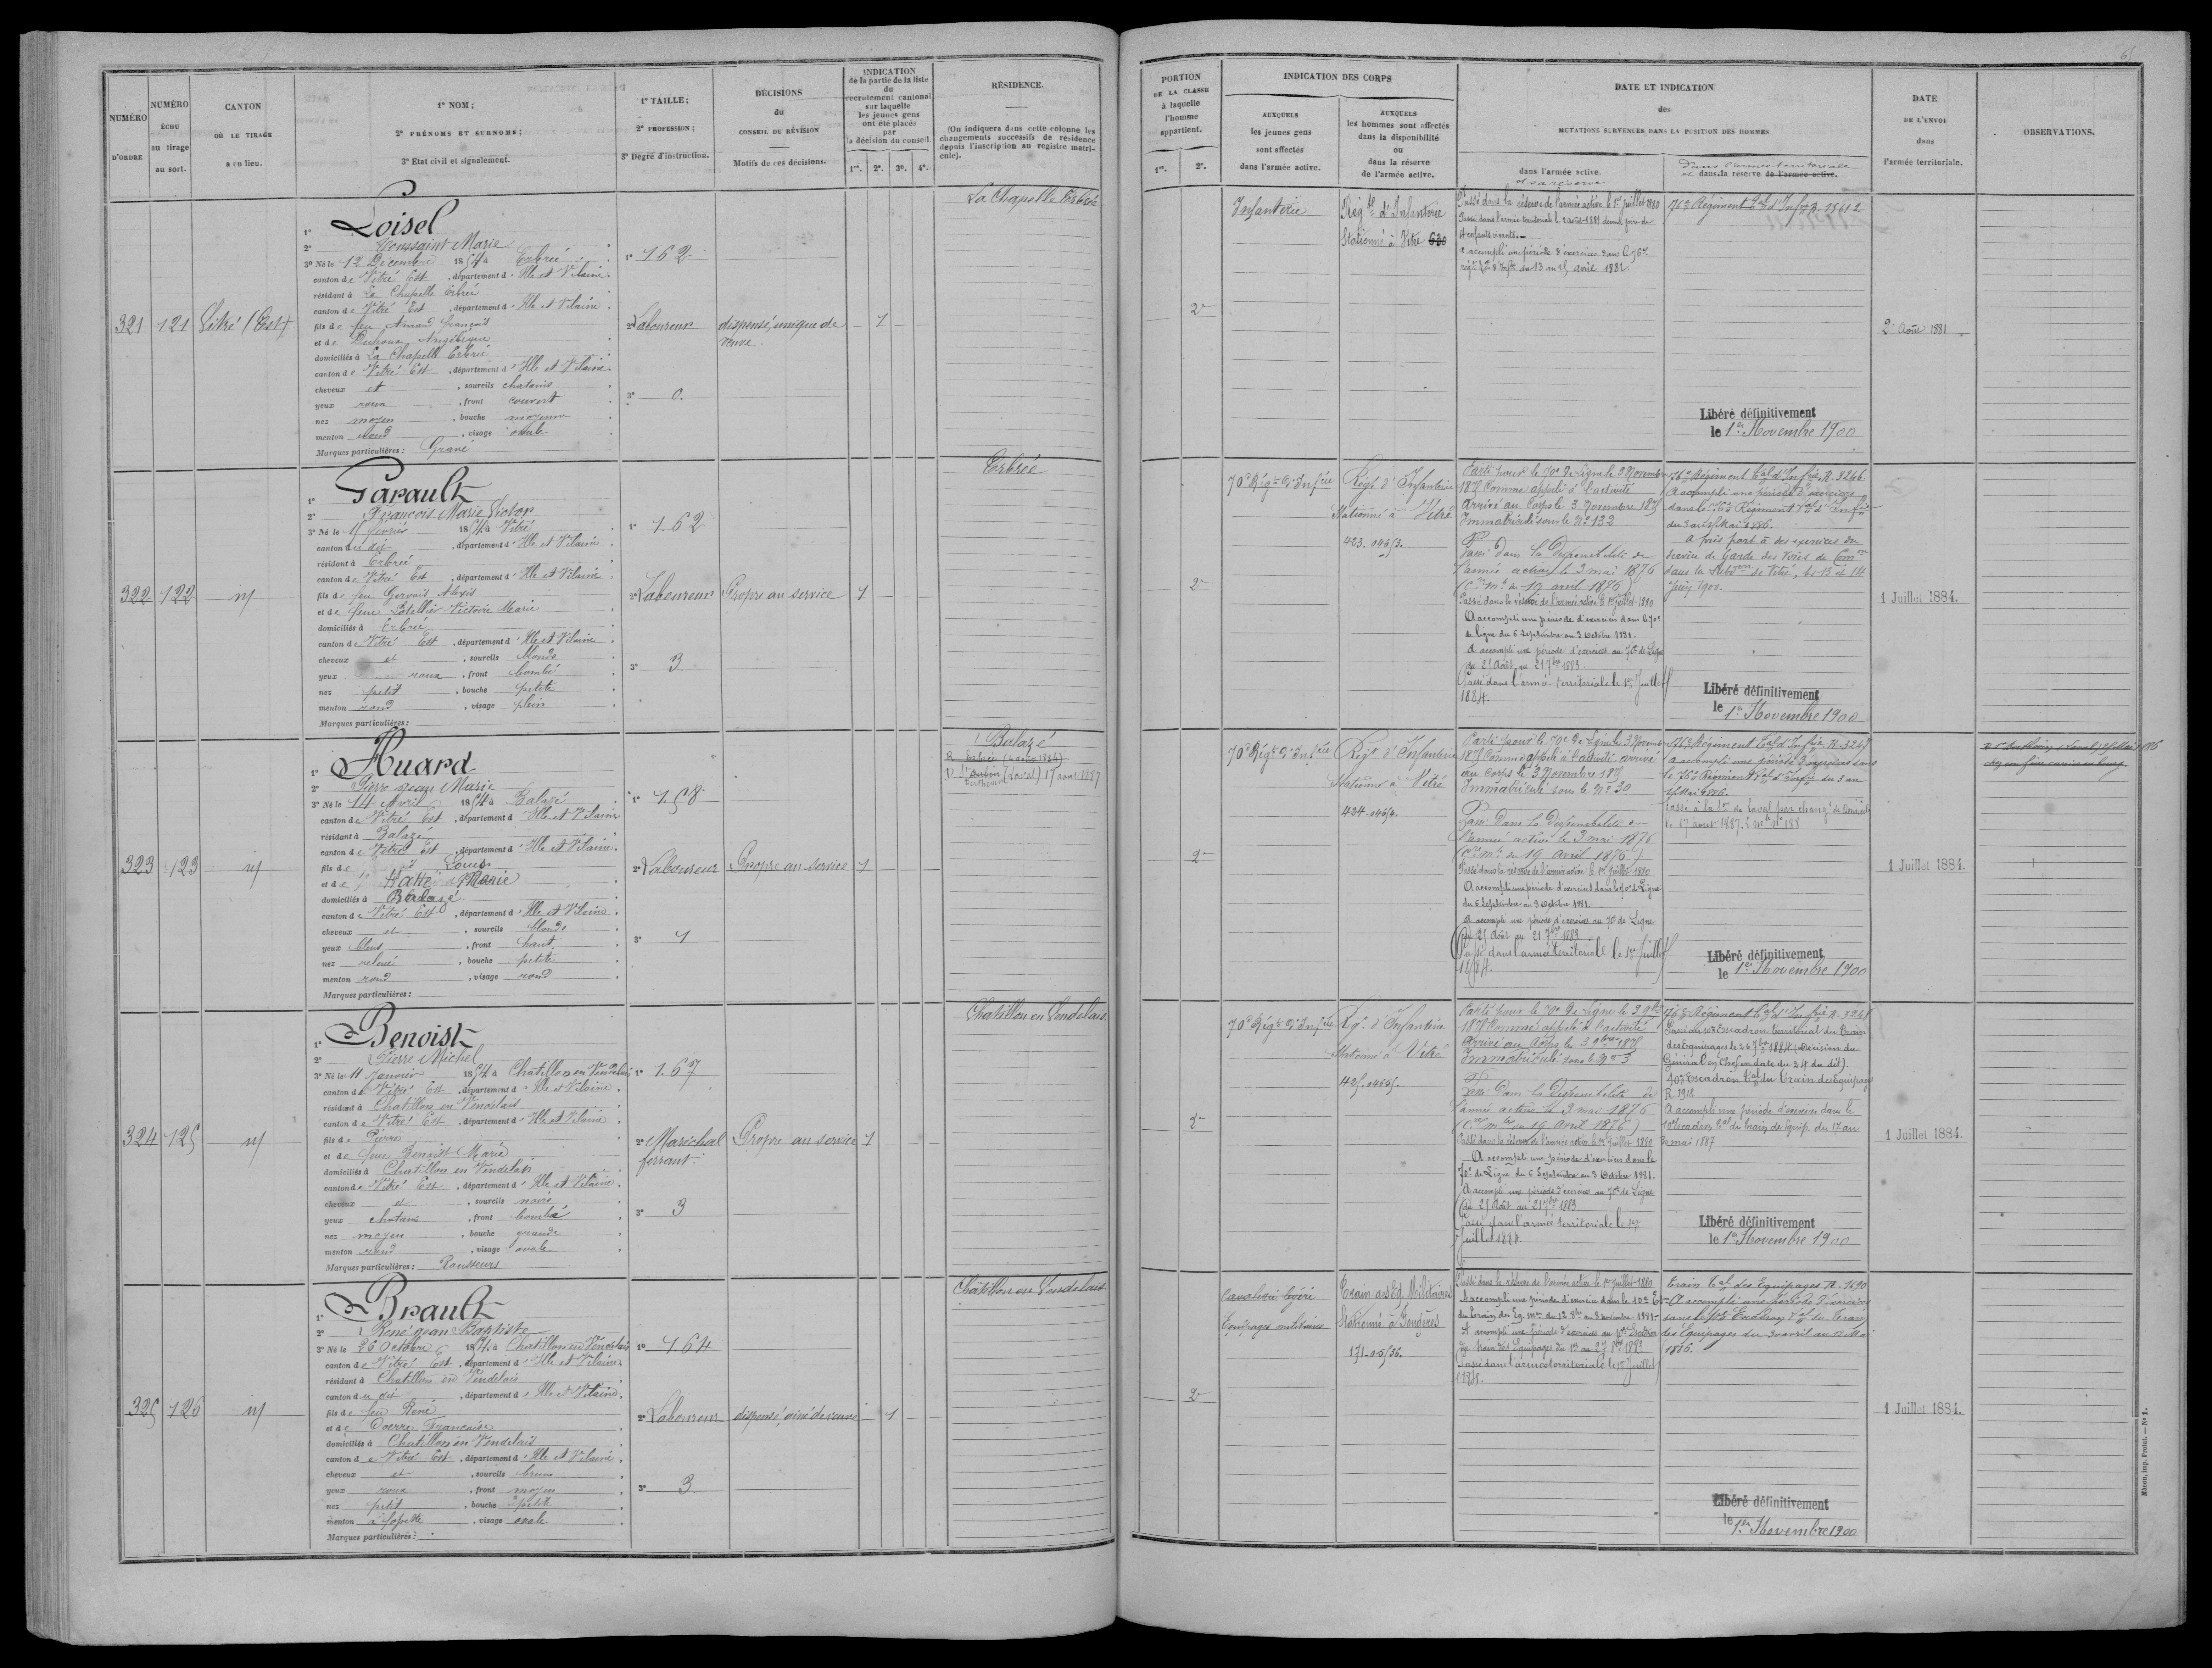 NUMÉRO D'ORDRE
NUMÉRO échu au tirage au sort.
CANTON OÙ LE TIRAGE a eu lieu.
1° NOM;
2° PRÉNOMS ET SURNOMS;
3° État civil et signalement.
1° TAILLE;
2° PROFESSION;
3° Degré d'instruction.
DÉCISIONS du CONSEIL DE RÉVISION
Motifs de ces décisions.
INDICATION de la partie de la liste du recrutement cantonal sur laquelle les jeunes gens ont été placés par la décision du conseil.
1re. 2e. 3e. 4e.
RÉSIDENCE.
(On indiquera dans cette colonne les changements successifs de résidence depuis l'inscription au registre matricule).
PORTION DE LA CLASSE à laquelle l'homme appartient.
1re. 2e.
INDICATION DES CORPS
AUXQUELS les jeunes gens sont affectés dans l'armée active.
AUXQUELS les hommes sont affectés dans la disponibilité ou dans la réserve de l'armée active.
DATE ET INDICATION des MUTATIONS SURVENUES DANS LA POSITION DES HOMMES
dans l'armée active.
et sa réserve
dans l'armée territoriale
et dans la réserve de l'armée active.
DATE DE L'ENVOI dans l'armée territoriale.
OBSERVATIONS.
321
121
Vitré (Est)
1° Loisel
2° Toussaint Marie
3° Né le 12 Décembre 1854 à Erbrée
canton de Vitré Est, département d'Ille et Vilaine.
résidant à La Chapelle Erbrée
canton de Vitré Est, département d'Ille et Vilaine.
fils de feu Armand François
et de
domiciliés à La Chapelle Erbrée
canton de Vitré Est, département d'Ille et Vilaine.
cheveux et, sourcils chatains
yeux roux, front couvert
nez moyen, bouche moyenne
menton rond, visage ovale
Marques particulières: Gravé
1° 1.62
2° Laboureur
3° 0.
dispensé, unique de veuve.
1
La Chapelle Erbrée
2e
Infanterie
Régt d'Infanterie
Stationné à Vitré 630
Passé dans la réserve de l'armée active le 1er Juillet 1880
Passé dans l'armée territoriale le 2 août 1881 comme père de
4 enfants vivants.
A accompli une période d'exercices dans le 76e
régt tal d'Inftie du 13 au 25 avril 1882.
76e Régiment tal d'Infie R. 38612
Libéré définitivement
le 1er Novembre 1900
2 Août 1881
322
122
id
1° Garault
2° François Marie Victor
3° Né le 15 février 1854 à Vitré
canton du dit, département d'Ille et Vilaine.
résidant à Erbrée
canton de Vitré Est, département d'Ille et Vilaine.
fils de feu Gervais Alexis
et de feue Victoire Marie
domiciliés à Erbrée
canton de Vitré Est, département d'Ille et Vilaine
cheveux et, sourcils blonds
yeux roux, front bombé
nez petit, bouche petite
menton rond, visage plein
Marques particulières:
1° 1.62
2° Laboureur
3° 3
Propre au service
1
Erbrée
2e
70e Régt d'Infrie
Régt d'Infanterie
Stationné à Vitré
423-0463.
Parti pour le 70e de Ligne le 3 Novembre
1875 Comme appelé à l'activité
Arrivé au Corps le 3 Novembre 1875
Immatriculé sous le No 132
Passé dans la Disponibilité de
l'armée active le 3 mai 1876
(Cre Mlle du 19 avril 1876)
Passé dans la réserve de l'armée active le 1er Juillet 1880
A accompli une période d'exercices dans le 70e
de ligne du 6 Septembre au 3 Octobre 1881.
A accompli une période d'exercices au 70e de Ligne
du 25 Août au 21 7bre 1883.
Passé dans l'armée territoriale le 1er Juillet
1884.
76e Régiment tal d'Infrie R. 3246
A accompli une période d'exercices
dans le 76e Régiment tal d'Infrie
du 3 au 15 Mai 1886.
A pris part à des exercices du
Service de Garde des Voies de Comon
dans la Subdon de Vitré, les 13 et 14
Juin 1900.
Libéré définitivement
le 1er Novembre 1900
1 Juillet 1884.
323
123
id
1° Huard
2° Pierre Jean Marie
3° Né le 14 Avril 1854 à Balazé
canton de Vitré Est, département d'Ille et Vilaine
résidant à Balazé
canton de Vitré Est, département d'Ille et Vilaine.
fils de Louis
et de Marie
domiciliés à Balazé
canton de Vitré Est, département d'Ille et Vilaine.
cheveux et, sourcils blonds
yeux bleus, front haut
nez relevé, bouche petite
menton rond, visage rond
Marques particulières:
1° 1.58
2° Laboureur
3° 1
Propre au service
1
Balazé
2e
70e Régt d'Infrie
Régt d'Infanterie
Stationné à Vitré
424-0464.
Parti pour le 70e de Ligne le 3 Novembre
1875 Comme appelé à l'activité, arrivé
au Corps le 3 Novembre 1875
Immatriculé sous le No 30
Passé dans la Disponibilité de
l'armée active le 3 mai 1876
(Cre Mlle du 19 Avril 1876)
Passé dans la réserve de l'armée active le 1er Juillet 1880
A accompli une période d'exercices dans le 70e de Ligne
du 6 Septembre au 3 Octobre 1881.
A accompli une période d'exercices au 70e de Ligne
du 25 Août au 21 7bre 1883
Passé dans l'armée territoriale le 1er Juillet
1884.
76e Régiment tal d'Infrie R. 3247
A accompli une période d'exercices dans
le 76e Régiment tal d'Infrie du 3 au
15 Mai 1886.
Passé à la Son de Laval par changt de Domicile
le 17 aout 1887.
Libéré définitivement
le 1er Novembre 1900
1 Juillet 1884.
324
125
id
1° Benoist
2° Pierre Michel
3° Né le 11 Janvier 1854 à Chatillon en Vendelais
canton de Vitré Est, département d'Ille et Vilaine.
résidant à Chatillon en Vendelais
canton de Vitré Est, département d'Ille et Vilaine.
fils de Pierre
et de feue Benoist Marie
domiciliés à Chatillon en Vendelais
canton de Vitré Est, département d'Ille et Vilaine.
cheveux et, sourcils noirs
yeux chatains, front bombé
nez moyen, bouche grande
menton rond, visage ovale
Marques particulières: Rousseurs
1° 1.67
2° Maréchal ferrant.
3° 3
Propre au service
1
Chatillon en Vendelais
2e
70e Régt d'Infrie
Régt d'Infanterie
Stationné à Vitré
425-0465.
Parti pour le 70e de Ligne le 3 9bre
1875 Comme appelé à l'activité
Arrivé au Corps le 3 9bre 1875
Immatriculé sous le No 3
Passé dans la Disponibilité de
l'armée active le 3 mai 1876
(Cre Mlle du 19 Avril 1876)
Passé dans la réserve de l'armée active le 1er Juillet 1880
A accompli une période d'exercices dans le
70e de Ligne du 6 Septembre au 3 Octobre 1881.
A accompli une période d'exercices au 70e de Ligne
du 25 Août au 21 7bre 1883
Passé dans l'armée territoriale le 1er
Juillet 1884.
76e Régiment tal d'Infrie R. 3248
Passé au 10e Escadron territorial du Train
des Equipages le 26 7bre 1884 (Décision du
Général en Chef en date du 24 du dit)
10e Escadron tal du Train des Equipages
R. 1918
A accompli une période d'exercices dans le
10e Escadron tal du train des équip. du 17 au
mai 1887
Libéré définitivement
le 1er Novembre 1900
1 Juillet 1884.
325
126
id
1° Brault
2° René Jean Baptiste
3° Né le 26 Octobre 1854 à Chatillon en Vendelais
canton de Vitré Est, département d'Ille et Vilaine
résidant à Chatillon en Vendelais
canton du dit, département d'Ille et Vilaine.
fils de feu René
et de Françoise
domiciliés à Chatillon en Vendelais
canton de Vitré Est, département d'Ille et Vilaine.
cheveux et, sourcils bruns
yeux roux, front moyen
nez petit, bouche petite
menton à fossette, visage ovale
Marques particulières:
1° 1.64
2° Laboureur
3° 3
dispensé, ainé de veuve
1
Châtillon en Vendelais
2e
Cavalerie légère
Equipages militaires
Train des Eq. Militaires
Stationné à Fougères
171-05/36.
Passé dans la réserve de l'armée active le 1er Juillet 1880
A accompli une période d'exercices dans le 10e Eon
du train des Eq. mres du 12 8bre au 8 novembre 1881
A accompli une période d'exercices au 10e Escadron
du train des Equipages
Passé dans l'armée territoriale le 1er Juillet
1884.
Train tal des Equipages R. 1690
A accompli une période d'exercices
dans le 10e Escadron tal du Train
des Equipages du 30 avril au 12 Mai
1886.
Libéré définitivement
le 1er Novembre 1900
1 Juillet 1884.
Mâcon, imp. Protat. — No 1.